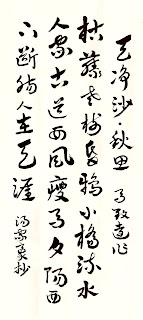 天净沙·秋思 马致远作
枯藤老树昏鸦小桥流水
人家古道西风瘦马夕阳西
下断肠人在天涯